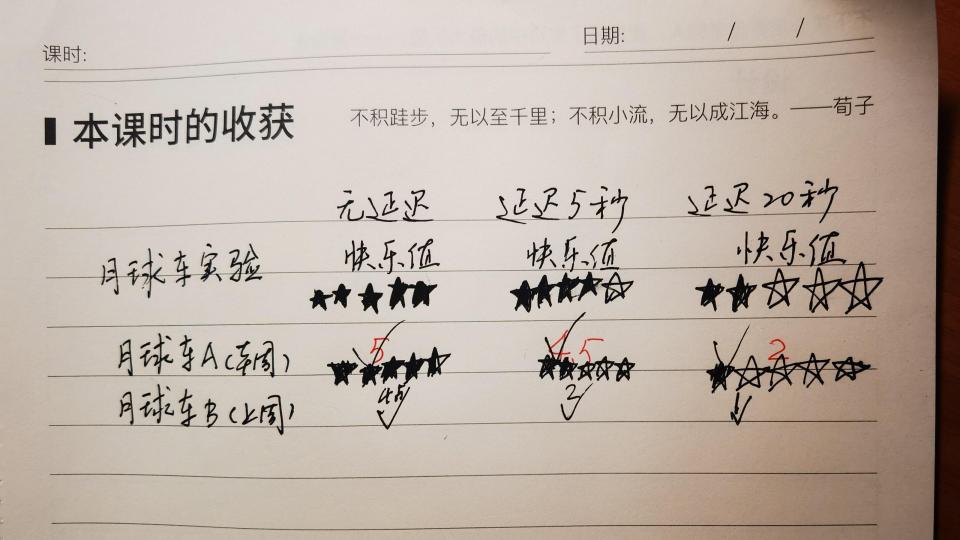 课时:
日期: / /
本课时的收获
不积跬步，无以至千里；不积小流，无以成江海。——荀子
无延迟 延迟5秒 延迟20秒
月球车实验 快乐值 快乐值 快乐值
★★★★★ ★★★★☆ ★★☆☆☆
月球车A(本周) 5 4.5 2
月球车B(上周) 3 1